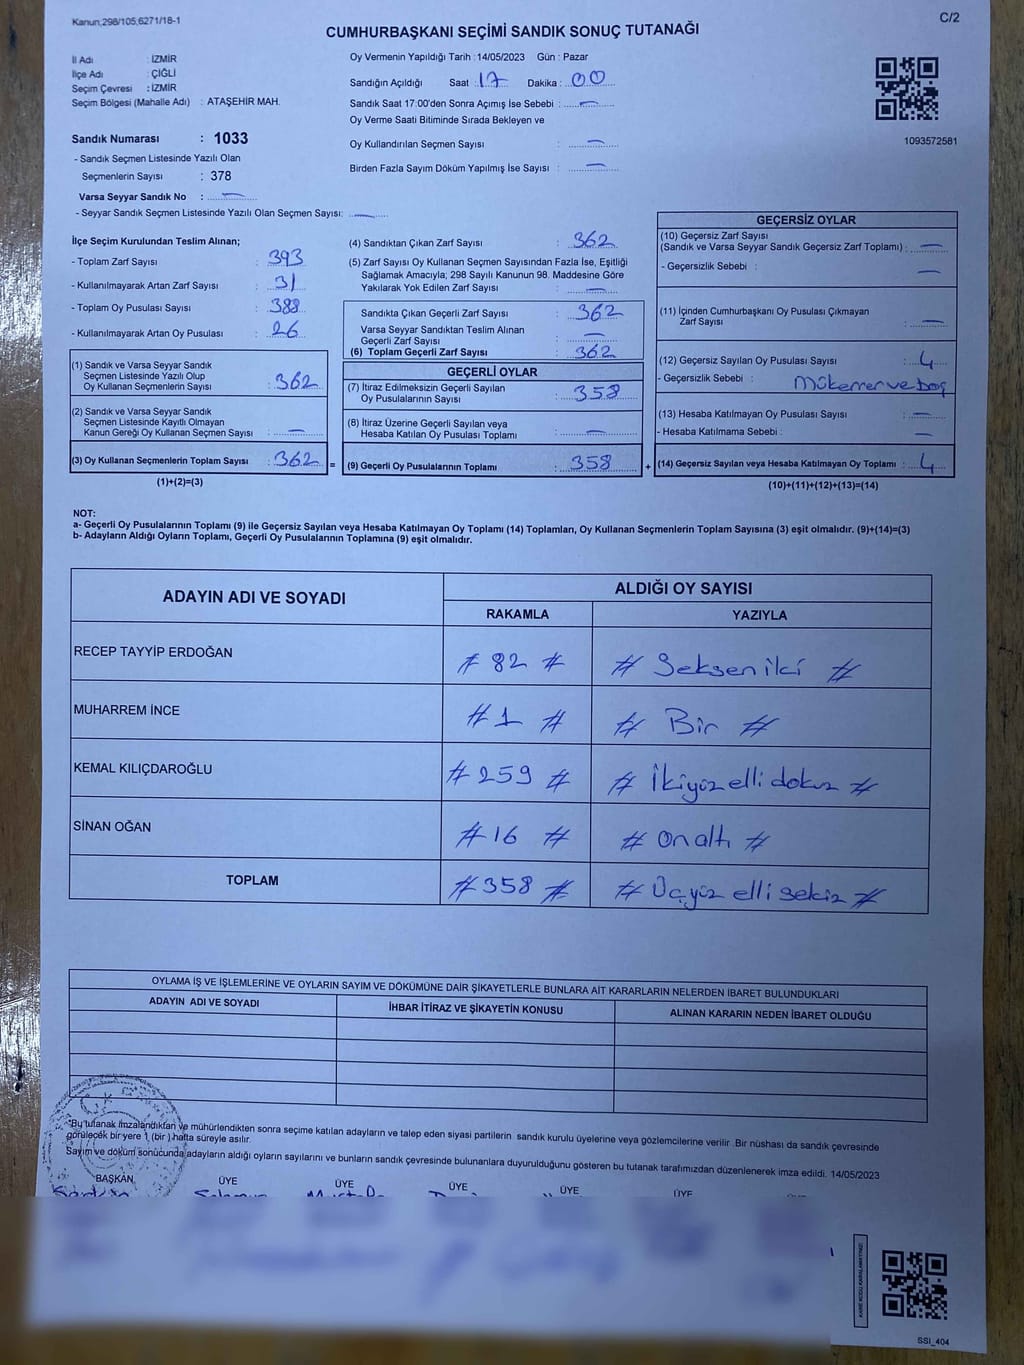 Kanun;298/105;6271/18-1
C/2
CUMHURBAŞKANI SEÇİMİ SANDIK SONUÇ TUTANAĞI
İl Adı : İZMİR
İlçe Adı : ÇİĞLİ
Seçim Çevresi : İZMİR
Seçim Bölgesi (Mahalle Adı) : ATAŞEHİR MAH.
Oy Vermenin Yapıldığı Tarih : 14/05/2023 Gün : Pazar
Sandığın Açıldığı Saat : 17 Dakika : 00
Sandık Saat 17:00'den Sonra Açımış İse Sebebi : —
Oy Verme Saati Bitiminde Sırada Bekleyen ve
Oy Kullandırılan Seçmen Sayısı : —
Birden Fazla Sayım Döküm Yapılmış İse Sayısı : —
1093572581
Sandık Numarası : 1033
- Sandık Seçmen Listesinde Yazılı Olan
Seçmenlerin Sayısı : 378
Varsa Seyyar Sandık No : —
- Seyyar Sandık Seçmen Listesinde Yazılı Olan Seçmen Sayısı: —
İlçe Seçim Kurulundan Teslim Alınan;
- Toplam Zarf Sayısı : 393
- Kullanılmayarak Artan Zarf Sayısı : 31
- Toplam Oy Pusulası Sayısı : 388
- Kullanılmayarak Artan Oy Pusulası : 26
(1) Sandık ve Varsa Seyyar Sandık
Seçmen Listesinde Yazılı Olup
Oy Kullanan Seçmenlerin Sayısı : 362
(2) Sandık ve Varsa Seyyar Sandık
Seçmen Listesinde Kayıtlı Olmayan
Kanun Gereği Oy Kullanan Seçmen Sayısı : —
(3) Oy Kullanan Seçmenlerin Toplam Sayısı : 362 =
(1)+(2)=(3)
(4) Sandıktan Çıkan Zarf Sayısı : 362
(5) Zarf Sayısı Oy Kullanan Seçmen Sayısından Fazla İse, Eşitliği
Sağlamak Amacıyla; 298 Sayılı Kanunun 98. Maddesine Göre
Yakılarak Yok Edilen Zarf Sayısı : —
Sandıkta Çıkan Geçerli Zarf Sayısı : 362
Varsa Seyyar Sandıktan Teslim Alınan
Geçerli Zarf Sayısı : —
(6) Toplam Geçerli Zarf Sayısı : 362
GEÇERLİ OYLAR
(7) İtiraz Edilmeksizin Geçerli Sayılan
Oy Pusulalarının Sayısı : 358
(8) İtiraz Üzerine Geçerli Sayılan veya
Hesaba Katılan Oy Pusulası Toplamı : —
(9) Geçerli Oy Pusulalarının Toplamı : 358 +
GEÇERSİZ OYLAR
(10) Geçersiz Zarf Sayısı
(Sandık ve Varsa Seyyar Sandık Geçersiz Zarf Toplamı) : —
- Geçersizlik Sebebi : —
(11) İçinden Cumhurbaşkanı Oy Pusulası Çıkmayan
Zarf Sayısı : —
(12) Geçersiz Sayılan Oy Pusulası Sayısı : 4
- Geçersizlik Sebebi : Mükerrer ve boş
(13) Hesaba Katılmayan Oy Pusulası Sayısı : —
- Hesaba Katılmama Sebebi : —
(14) Geçersiz Sayılan veya Hesaba Katılmayan Oy Toplamı : 4
(10)+(11)+(12)+(13)=(14)
NOT:
a- Geçerli Oy Pusulalarının Toplamı (9) ile Geçersiz Sayılan veya Hesaba Katılmayan Oy Toplamı (14) Toplamları, Oy Kullanan Seçmenlerin Toplam Sayısına (3) eşit olmalıdır. (9)+(14)=(3)
b- Adayların Aldığı Oyların Toplamı, Geçerli Oy Pusulalarının Toplamına (9) eşit olmalıdır.
ADAYIN ADI VE SOYADI ALDIĞI OY SAYISI
RAKAMLA YAZIYLA
RECEP TAYYİP ERDOĞAN # 82 # # Seksen iki #
MUHARREM İNCE # 1 # # Bir #
KEMAL KILIÇDAROĞLU # 259 # # İkiyüz elli dokuz #
SİNAN OĞAN # 16 # # On altı #
TOPLAM # 358 # # Üçyüz elli sekiz #
OYLAMA İŞ VE İŞLEMLERİNE VE OYLARIN SAYIM VE DÖKÜMÜNE DAİR ŞİKAYETLERLE BUNLARA AİT KARARLARIN NELERDEN İBARET BULUNDUKLARI
ADAYIN ADI VE SOYADI İHBAR İTİRAZ VE ŞİKAYETİN KONUSU ALINAN KARARIN NEDEN İBARET OLDUĞU
*Bu tutanak imzalandıktan ve mühürlendikten sonra seçime katılan adayların ve talep eden siyasi partilerin sandık kurulu üyelerine veya gözlemcilerine verilir .Bir nüshası da sandık çevresinde
görülecek bir yere 1 (bir ) hafta süreyle asılır.
Sayım ve döküm sonucunda adayların aldığı oyların sayılarını ve bunların sandık çevresinde bulunanlara duyurulduğunu gösteren bu tutanak tarafımızdan düzenlenerek imza edildi. 14/05/2023
BAŞKAN ÜYE ÜYE ÜYE ÜYE ÜYE
SSİ_404